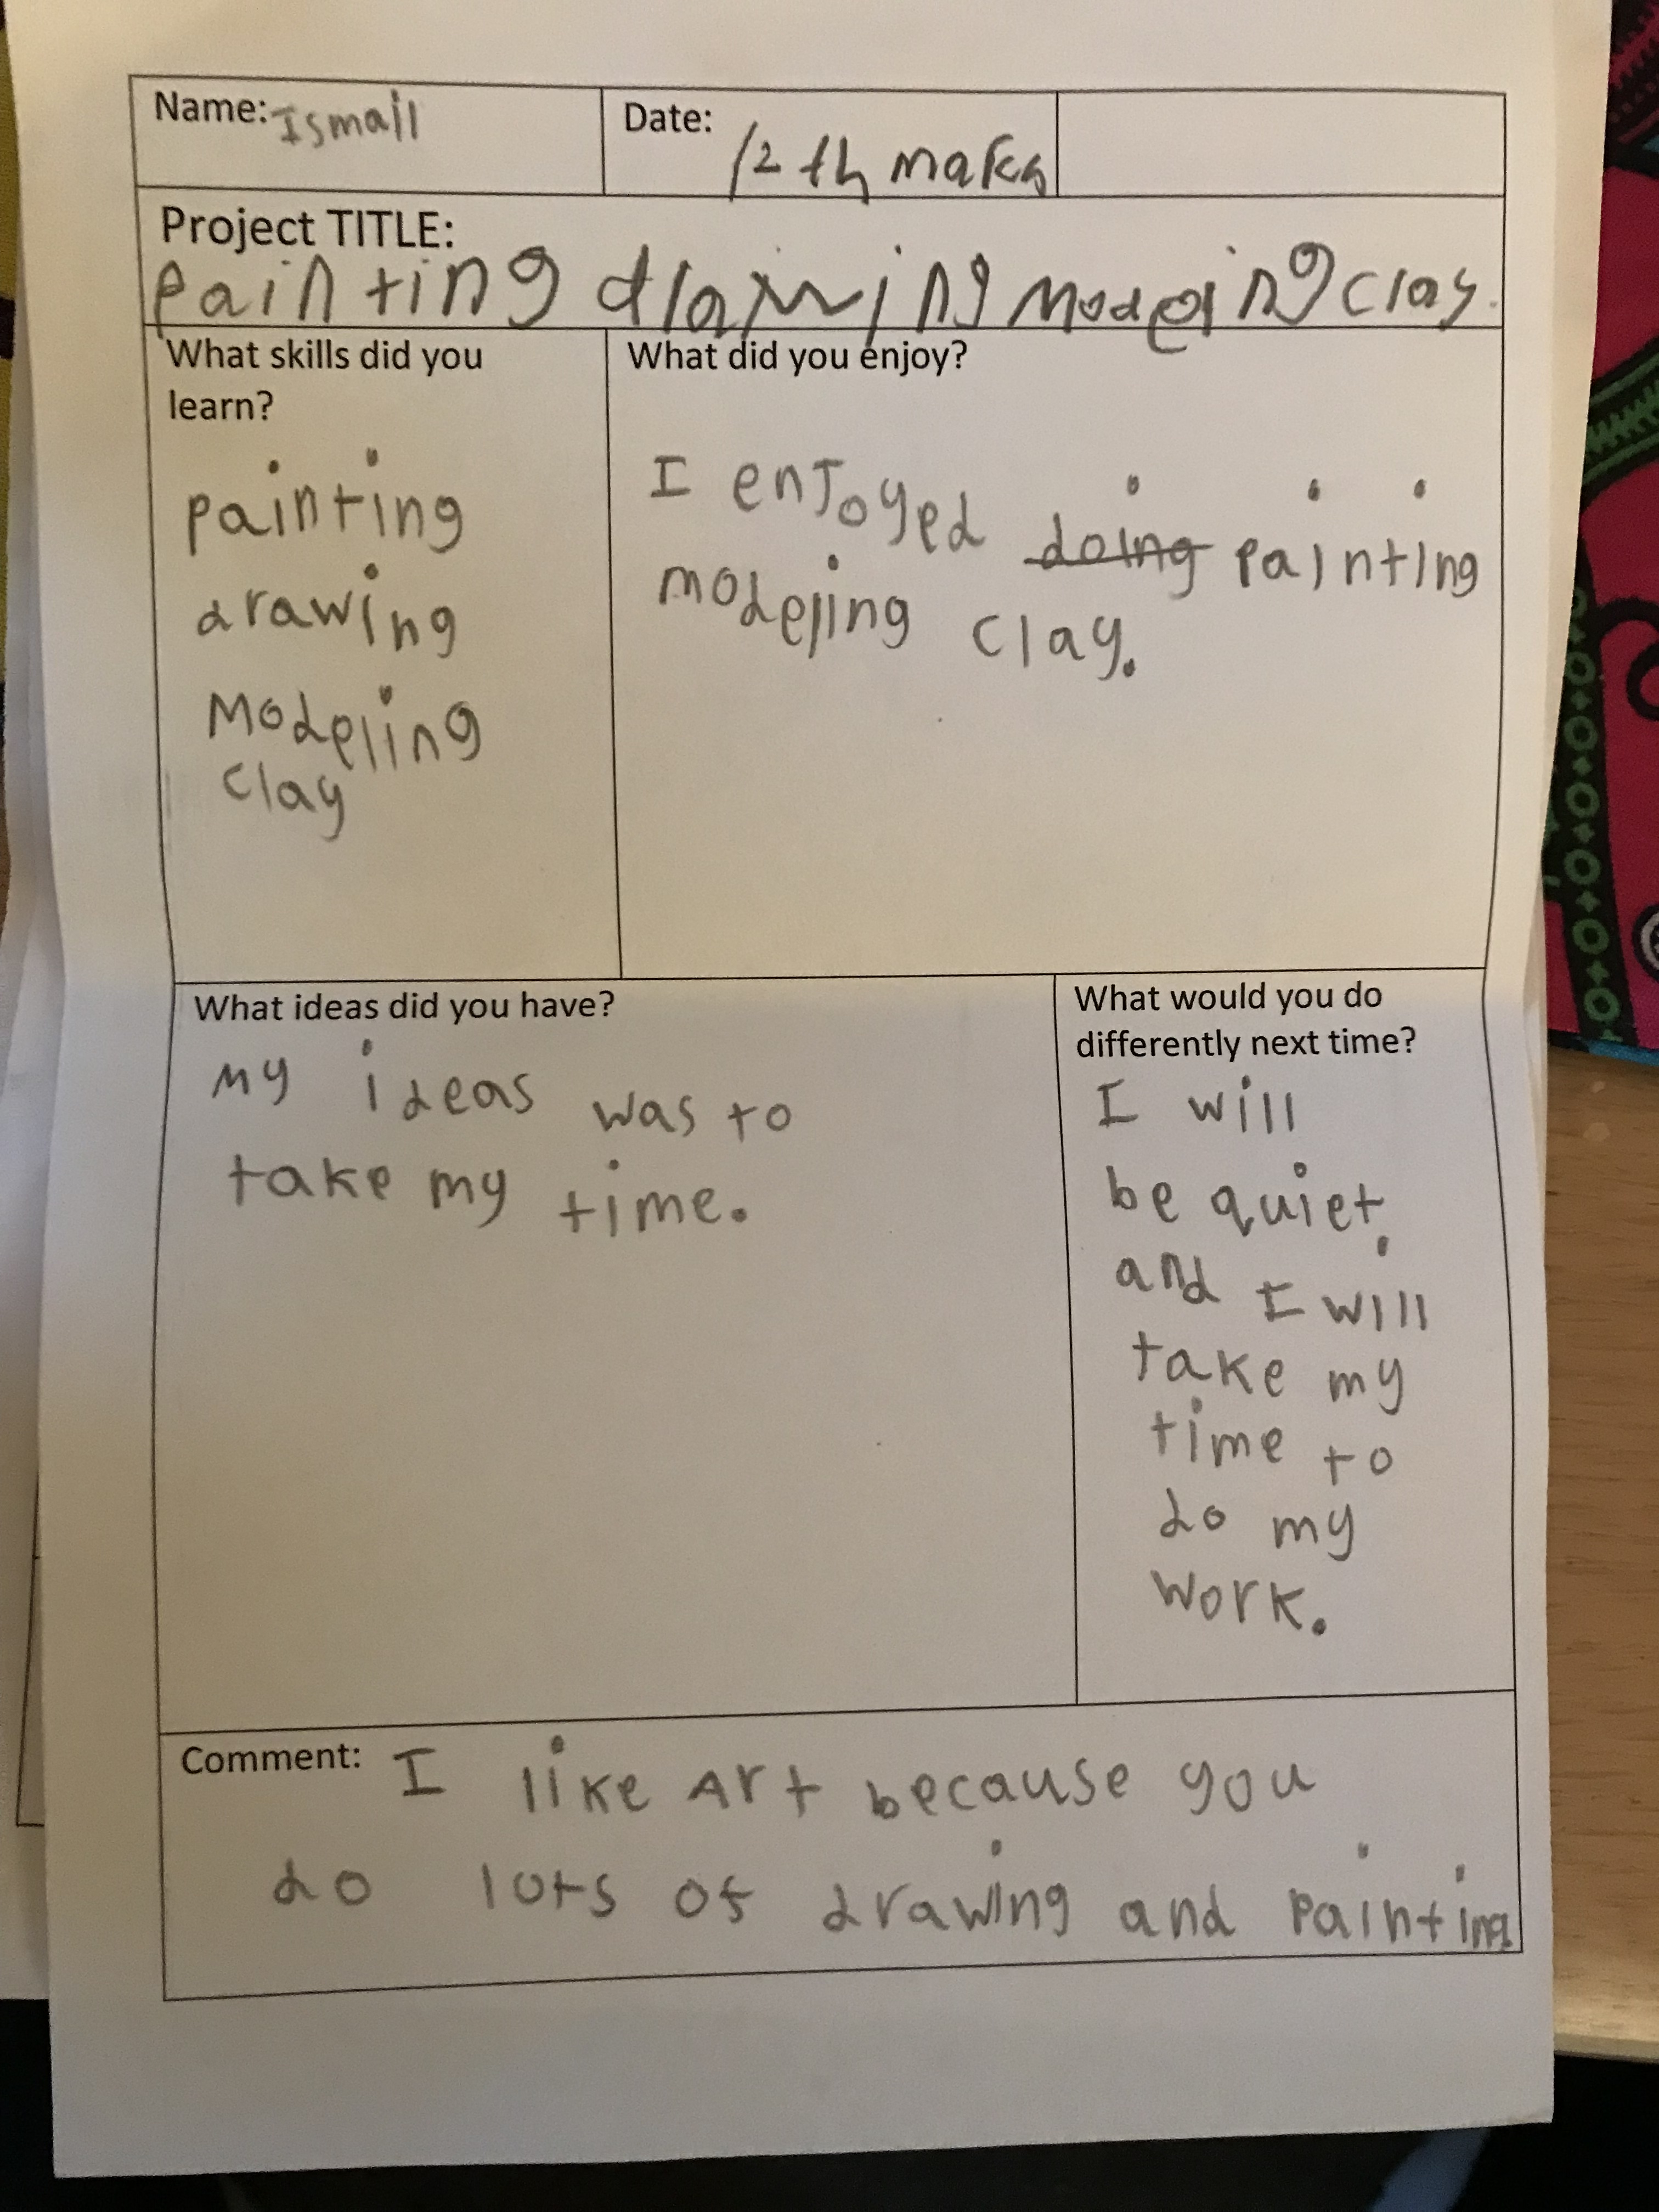 Name: Ismail
Date: 12th
Project TITLE:
Painting drawing modeling clay.
What skills did you
learn?
painting
drawing
Modeling
clay
What did you enjoy?
I enjoyed doing painting
modeling clay.
What ideas did you have?
my ideas was to
take my time.
What would you do
differently next time?
I will
be quiet
and I will
take my
time to
do my
work.
Comment: I like Art because you
do lots of drawing and painting